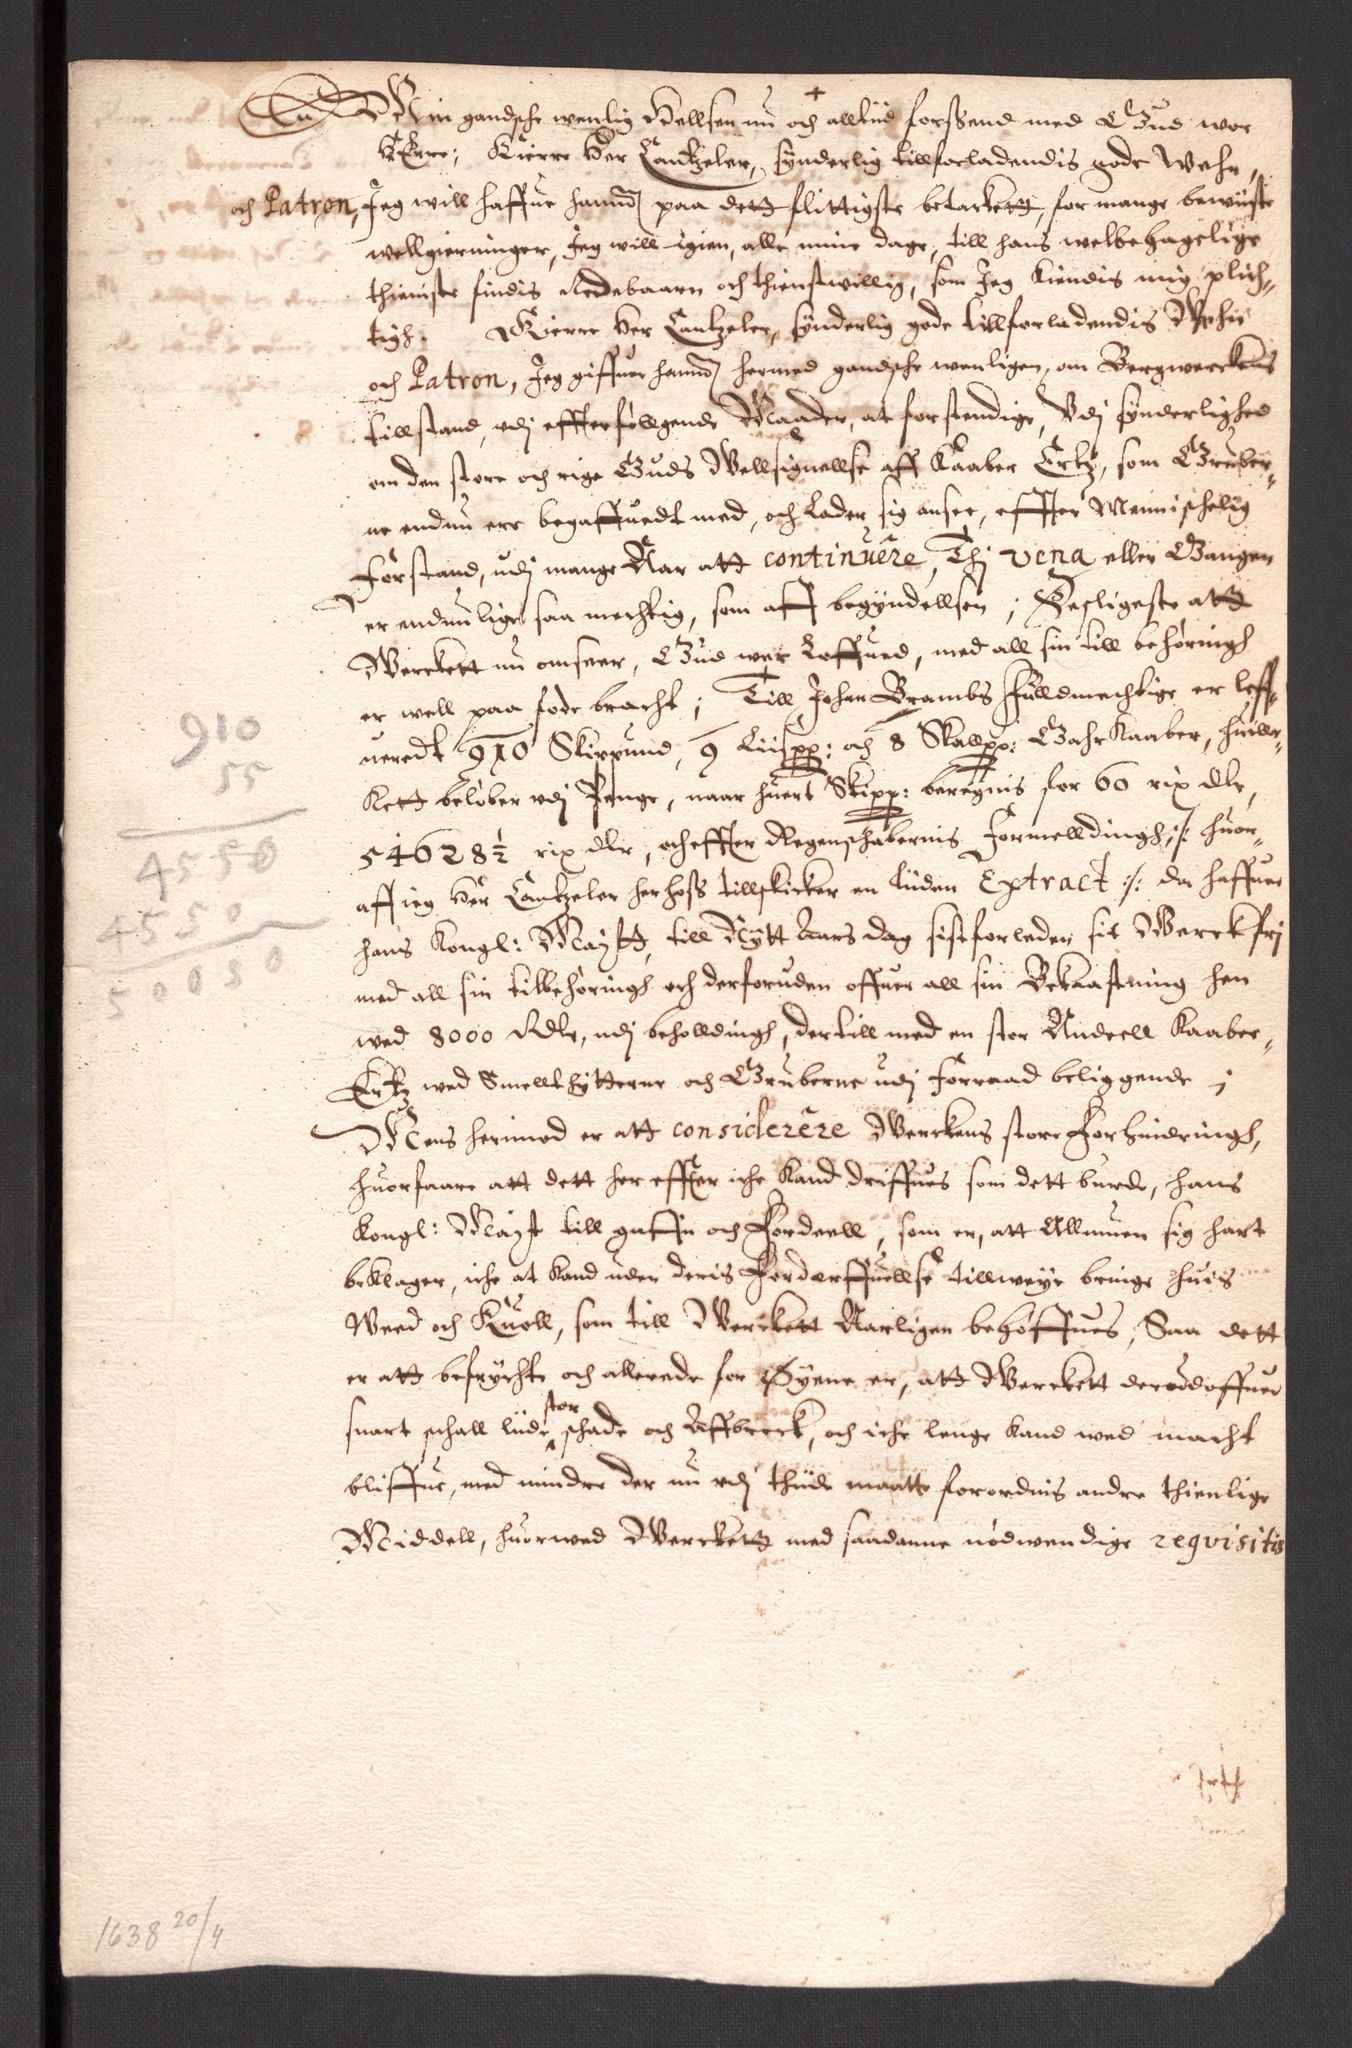 Min gandsche wenlig Hellsen nu och alltiid forsend med Gud wor
HErre; Kierre Her Cantzeler, synderlig tillforladendis gode Wehn,
och Patron, Jeg will haffue hannd paa dett flittigste betackett, for mange bewiiste
wellgierninger, Jeg will igien, alle mine dage, till hans welbehagelige
thieniste findis Redebaarn och thienstwillig, som Jeg kiendis mig plich-
tigh. Kierre Her Cantzeler, synderlig gode tillforladendis Wehn
och Patron, Jeg giffuer hannd hermed gandsche wenligen, om Bergwerckens
tillstand, udj effterføllgende Maader, at forstendige, Udj synderlighed
om den store och rige Guds Wellsignellse aff Kaaber Ertz, som Gruber-
ne endnu ere begaffuedt med, och lader sig ansee, effter Mennischelig
Forstand, udj mange Aar att continuêre, Thj vena eller Gangen
er endnu lige saa mechtig, som aff begyndellsen; Desligeste att
Werckett nu omseer, Gud wer Loffued, med all sin till behøringh
er well paa fode bracht; Till Johan Brambs fulldmechtige er leff-
ueredt 910 Skippund, 9 Liispp: och 8 Skaallpp: Gahr Kaaber, huillc-
kett beløber udj Penge, naar huert Skipp: beregnis for 60 rix dlr,
54628½ rix dlr, och effter Regenschabernis Formelldingh, ⁒ huor-
aff ieg Her Cantzeler herhoss tillskicker en liiden Extract ⁒ da haffuer
hans Kongl: Maytt, till Nytt Aars dag sistforleden sit Werck frj
med all sin tilbehøringh och derforuden offuer all sin Bekaastning hen
wed 8000 Rdlr, udj beholldingh, dertill med en stor Andeell Kaaber-
Ertz wed Smellthytterne och Gruberne udj Forraad beliggende;
Mens herimod er att considerêre Werckens store Forhindringh,
huorfaare att dett her effter iche kand driffues som dett burde, hans
Kongl: Mayst till gaffn och Fordeell, som er, att Allmuen sig hart
beklager, iche at kand uden deris Forderffuellse tillweye bringe huis
Weed och Kuoll, som till Werckett Aarligen behøffues, Saa dett
er att befrychte och allerede for Øyene er, att Werckett derudoffuer
snart schall liide stor schade och Affbreck, och iche lenge kand wed macht
bliffue, med mindre der nu udj thiide maatte forordnis andre thienlige
Middell, huorwed Werckett med saadanne nødwendige requisitis
910
55
4550
4550
50050
1638 20/4